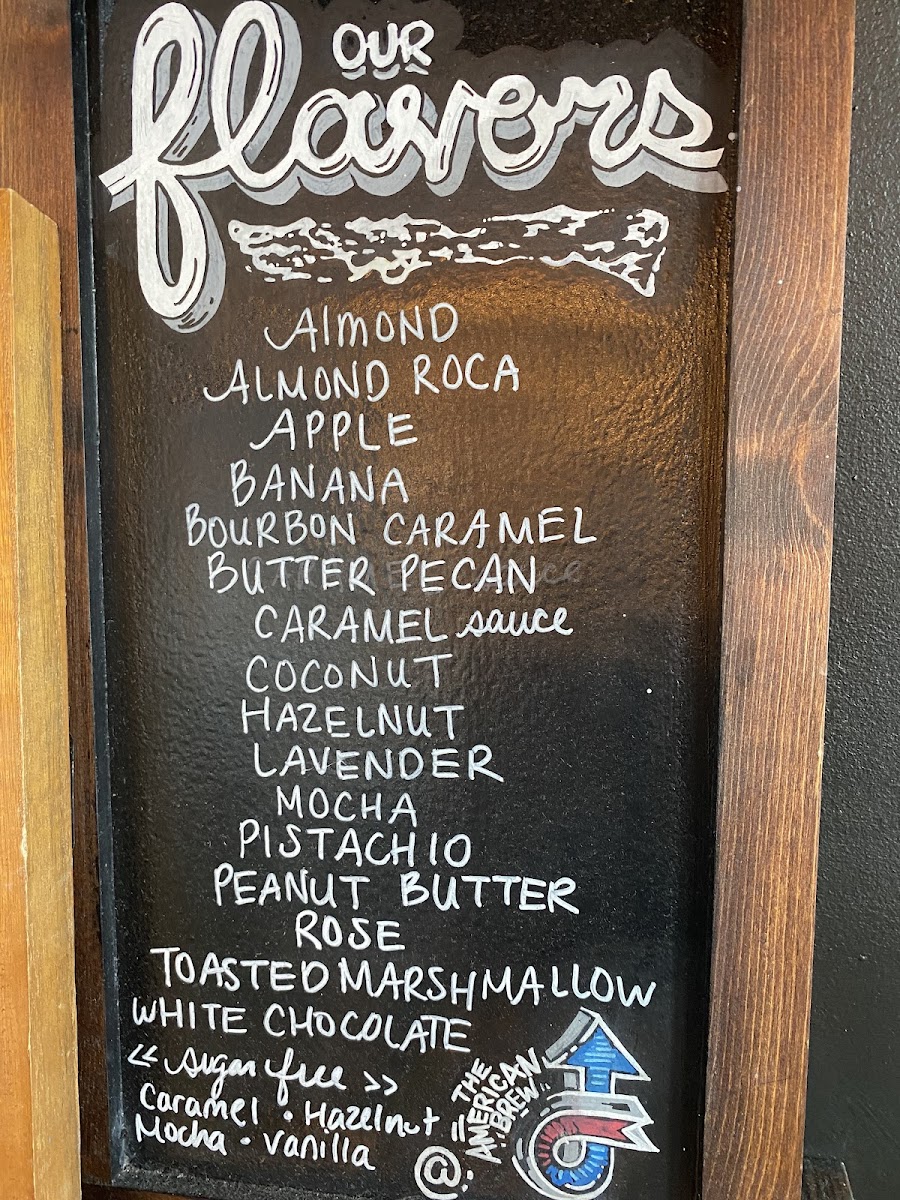 OUR
flavors
ALMOND
ALMOND ROCA
APPLE
BANANA
BOURBON CARAMEL
BUTTER PECAN
CARAMEL sauce
COCONUT
HAZELNUT
LAVENDER
MOCHA
PISTACHIO
PEANUT BUTTER
ROSE
TOASTED MARSHMALLOW
WHITE CHOCOLATE
<< sugar free >>
Caramel • Hazelnut
Mocha • vanilla
@
THE
AMERICAN
BREW